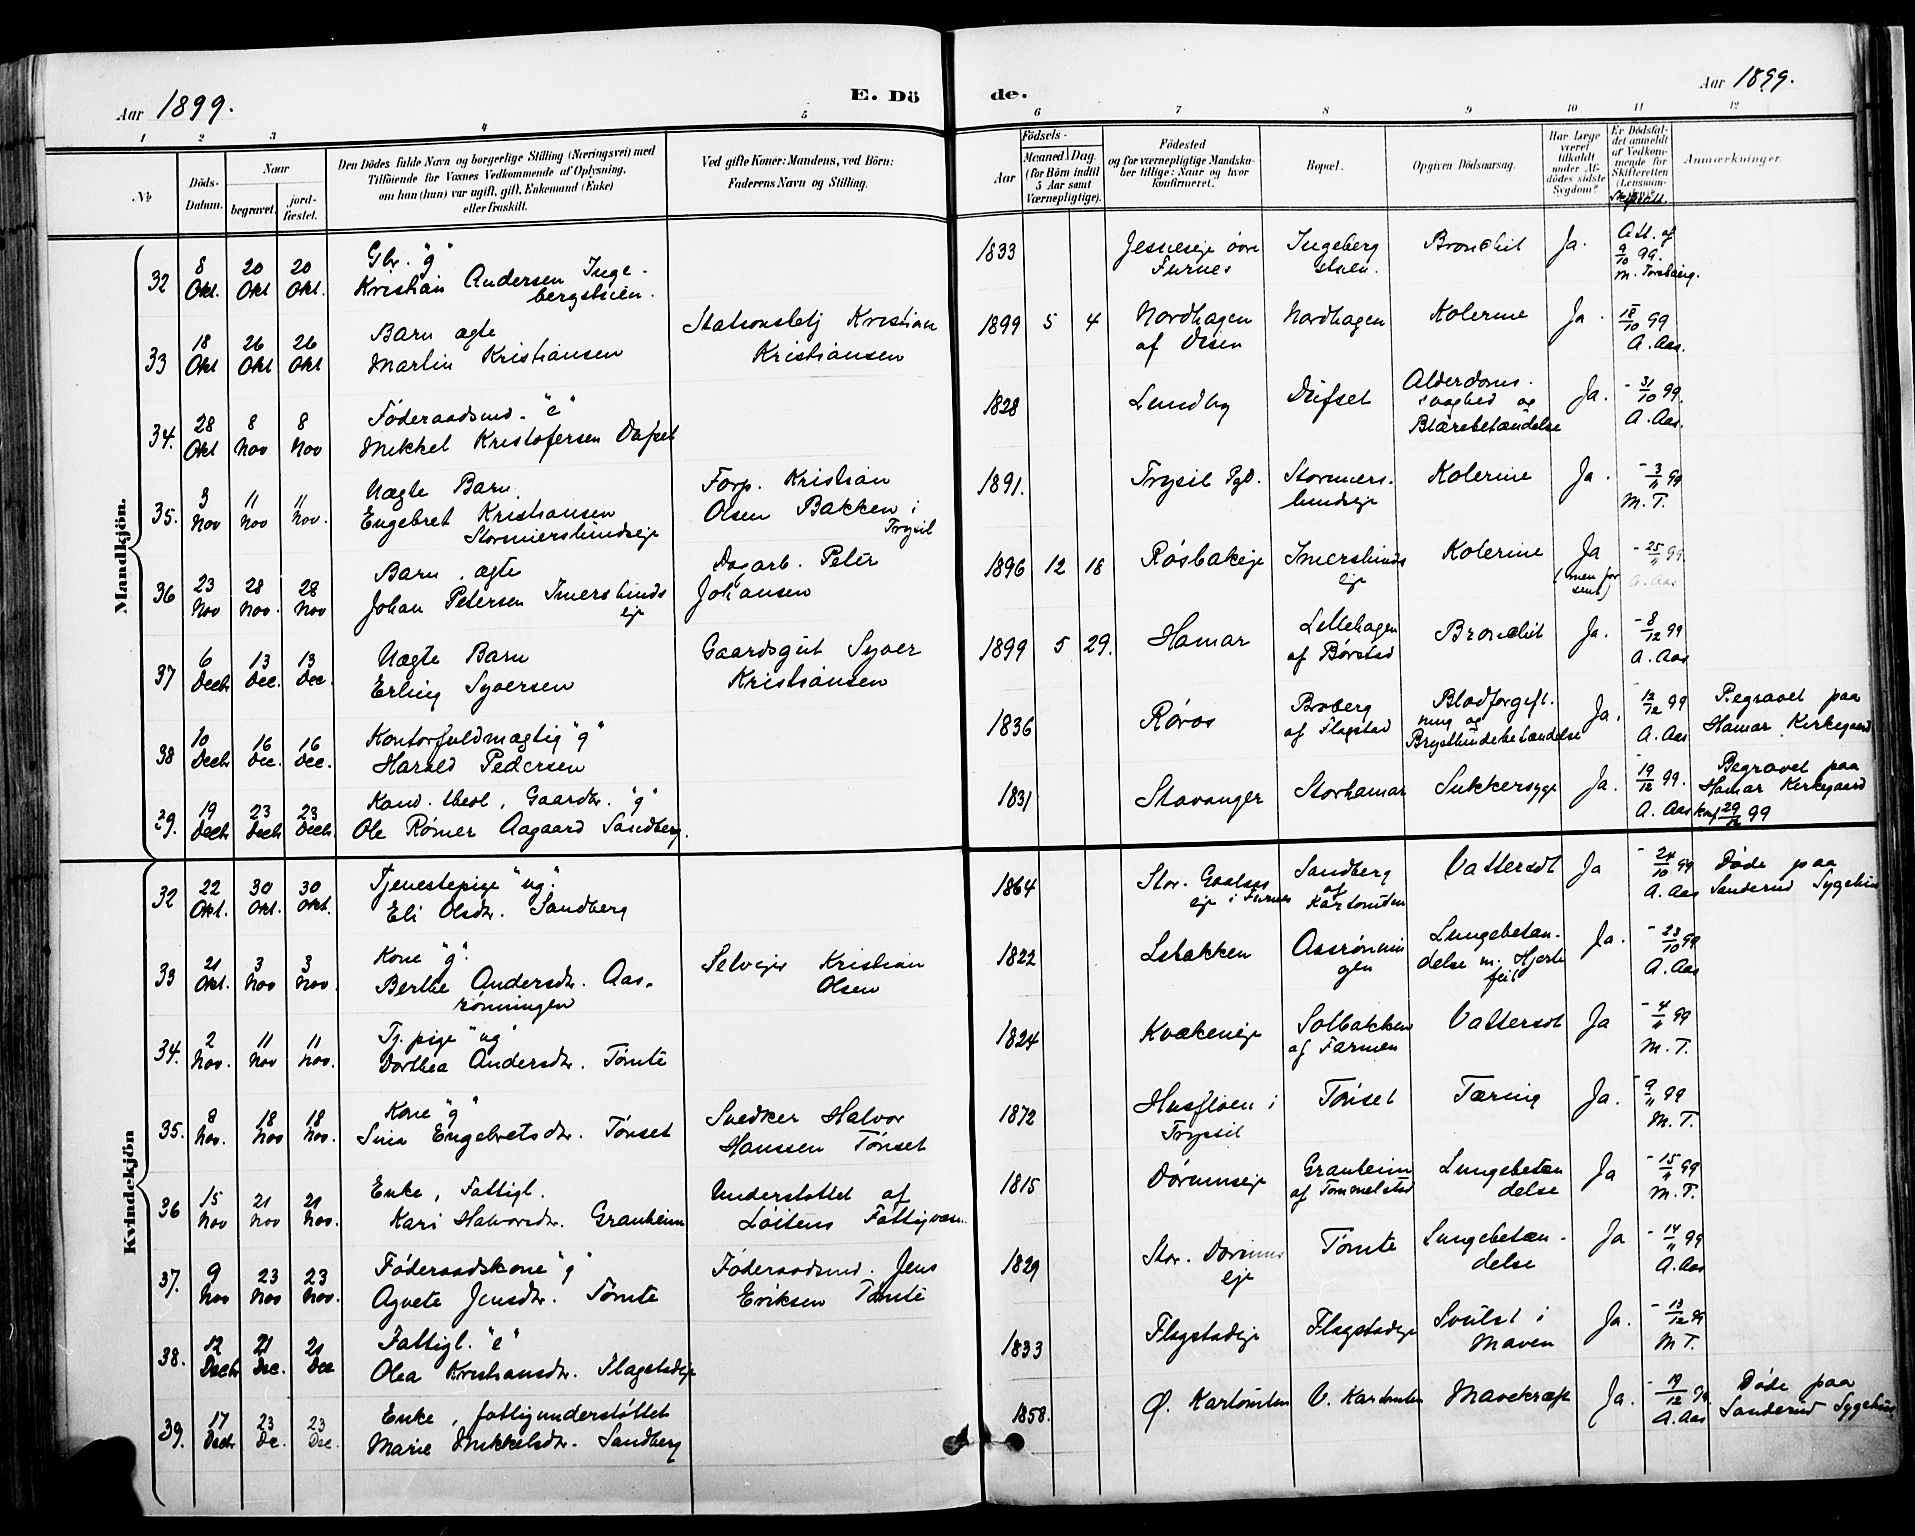 Aar 1899.
E. Dö
de.
Aar 1899.
1 2 3 4 5 6 7 8 9 10 11 12
No
Döds-Datum.
Naar
begravet.
jord-fæstet.
Den Dödes fulde Navn og borgerlige Stilling (Næringsvei) med
Tilföiende for Voxnes Vedkommende af Oplysning,
om han (hun) var ugift, gift, Enkemand (Enke)
eller fraskilt.
Ved gifte Koner: Mandens, ved Börn:
Faderens Navn og Stilling.
Födsels-
Aar
Maaned Dag
(for Börn indtil
5 Aar samt
Værnepligtige).
Födested
og for værnepligtige Mandska-
ber tillige: Naar og hvor
konfirmeret.
Bopæl.
Opgiven Dödsaarsag.
Har Læge
været
tilkaldt
under Af-
dödes sidste
Sygdom?
Er Dödsfal-
det anmeldt
af Vedkom-
mende for
Skifteretten
(Lensman-
den)?
Anmærkninger.
Mandkjön.
32 8 Okt. 20 Okt 20 Okt. Gbr. "g" Kristian Andersen Inge-
bergstuen. 1833 Jesneseje övre Furnes Ingeberg stuen. Bronchit Ja. Att. af 9/10 99. M. Torsbærg.
33 18 Okt 26 Okt 26 Okt Barn ægte Martin Kristiansen Stationsbetj Kristian Kristiansen 1899 5 4 Nordhagen af Disen Nordhagen Kolerine Ja. 18/10 99 A. Aas.
34. 28 Okt 8 Nov 8 Nov Föderaadsmd. "e" Mikkel Kristofersen Dufset 1828 Lundby Dufset Alderdoms-
svaghed og Blærebetændelse Ja. 31/10 99. A. Aas.
35. 3 Nov 11 Nov 11 Nov. Uægte Barn. Engebret Kristiansen Stormerslundseje Forp. Kristian Olsen Bakken i Trysil 1891. Trysil Pgd. Stormers-
lundseje Kolerine Ja. 3/11 99 M. T.
36 23 Nov 28 Nov. 28 Nov Barn, ægte Johan Petersen Imerslunds eje Dagarb. Peter Johansen 1896 12 18 Røsbakeje Imerslunds eje Kolerine Ja (men for sent) 25/11 99. A. Aas
37 6 Decb 13 Dec. 13 Dec. Uægte Barn Erling Syversen Gaardsgut Syver Kristiansen 1899 5 29. Hamar Lillehagen af Børstad Bronchit Ja. 8/12 99 A. Aas
38 10 Decb 16 Dec. 16 Dec. Kontorfuldmægtig "g" Harald Pedersen 1836 Røros Broberg af Flagstad Blodforgift-
ning og Brysthindebetændelse Ja. 12/12 99 A. Aas Begravet paa Hamar Kirkegaard
39. 19 Decb 23 Decb 23 Decb Kand. theol, Gaardbr. "g" Ole Rømer Aagaard Sandberg. 1831 Stavanger Storhamar Sukkersyge Ja. 19/12 99. A. Aas Begravet paa Hamar Kirkegaard 29/12 99
Kvindekjön
32 22 Okt. 30 Okt. 30 Okt. Tjenestepige "ug." Eli Olsdtr. Sandberg 1864 Stor. Gaalaas eje i Furnes Sandberg af Kartomten Vattersot Ja 24/10 99 A. Aas Døde paa Sanderud Sygehus
33 21 Okt. 3 Nov 3 Nov. Kone "g." Berthe Andersdtr. Aas-
rønningen Selvejer Kristian Olsen 1822 Lebakken Aasrønnin gen Lungebetæn-
delse m. Hjerte feil Ja. 23/10 99 A. Aas
34. 2 Nov. 11 Nov 11 Nov. Tj. pige "ug" Dorthea Andersdtr. Tømte 1824 Kvækeneje Solbakken af Farmen Vattersot Ja 4/11 99 M. T.
35. 8 Nov. 18 Nov 18 Nov. Kone "g" Sina Engebretsdtr. Tønset Snedker Halvor Hanssen Tønset 1872 Husfloen i Trysil Tønset Tæring Ja. 9/11 99 M. T.
36 15 Nov 21 Nov 21 Nov. Enke, Fattigl. Kari Halvorsdtr. Granheim Understøttet af Løitens Fattigvæsen 1815 Dørumseje Granheim af Tommelstad Lungebetæn delse Ja 15/11 99 M. T.
37. 9 Nov 23 Nov 23 Nov. Föderaadskone "g" Agnete Jensdtr. Tømte Föderaadsmd. Jens Eriksen Tømte 1829 Stor. Dørums eje Tømte Lungebetæn-
delse Ja 14/11 99 A. Aas
38. 12 Decb 21 Dec. 21 Dec Fattigl. "e" Olea Kristiansdtr. Flagstadeje 1833 Flagstadeje Flagstadeje Svulst i Maven Ja. 13/12 99 M T.
39. 17 Decb 23 De. 23 Dec. Enke, fattigunderstøttet Marie Mikkelsdtr. Sandberg 1858. Ø. Kartomten V. Kartomten Mavekræft Ja. 19/12 99 A. Aas Døde paa Sanderud Sygehus